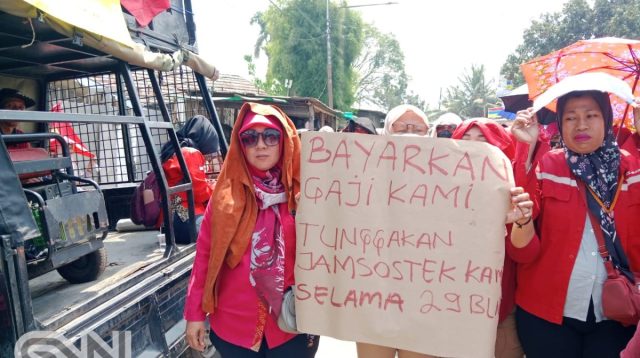 BAYARKAN
GAJI KAMI.
TUNGGAKAN
JAMSOSTEK KAMI
SELAMA 29 BLN